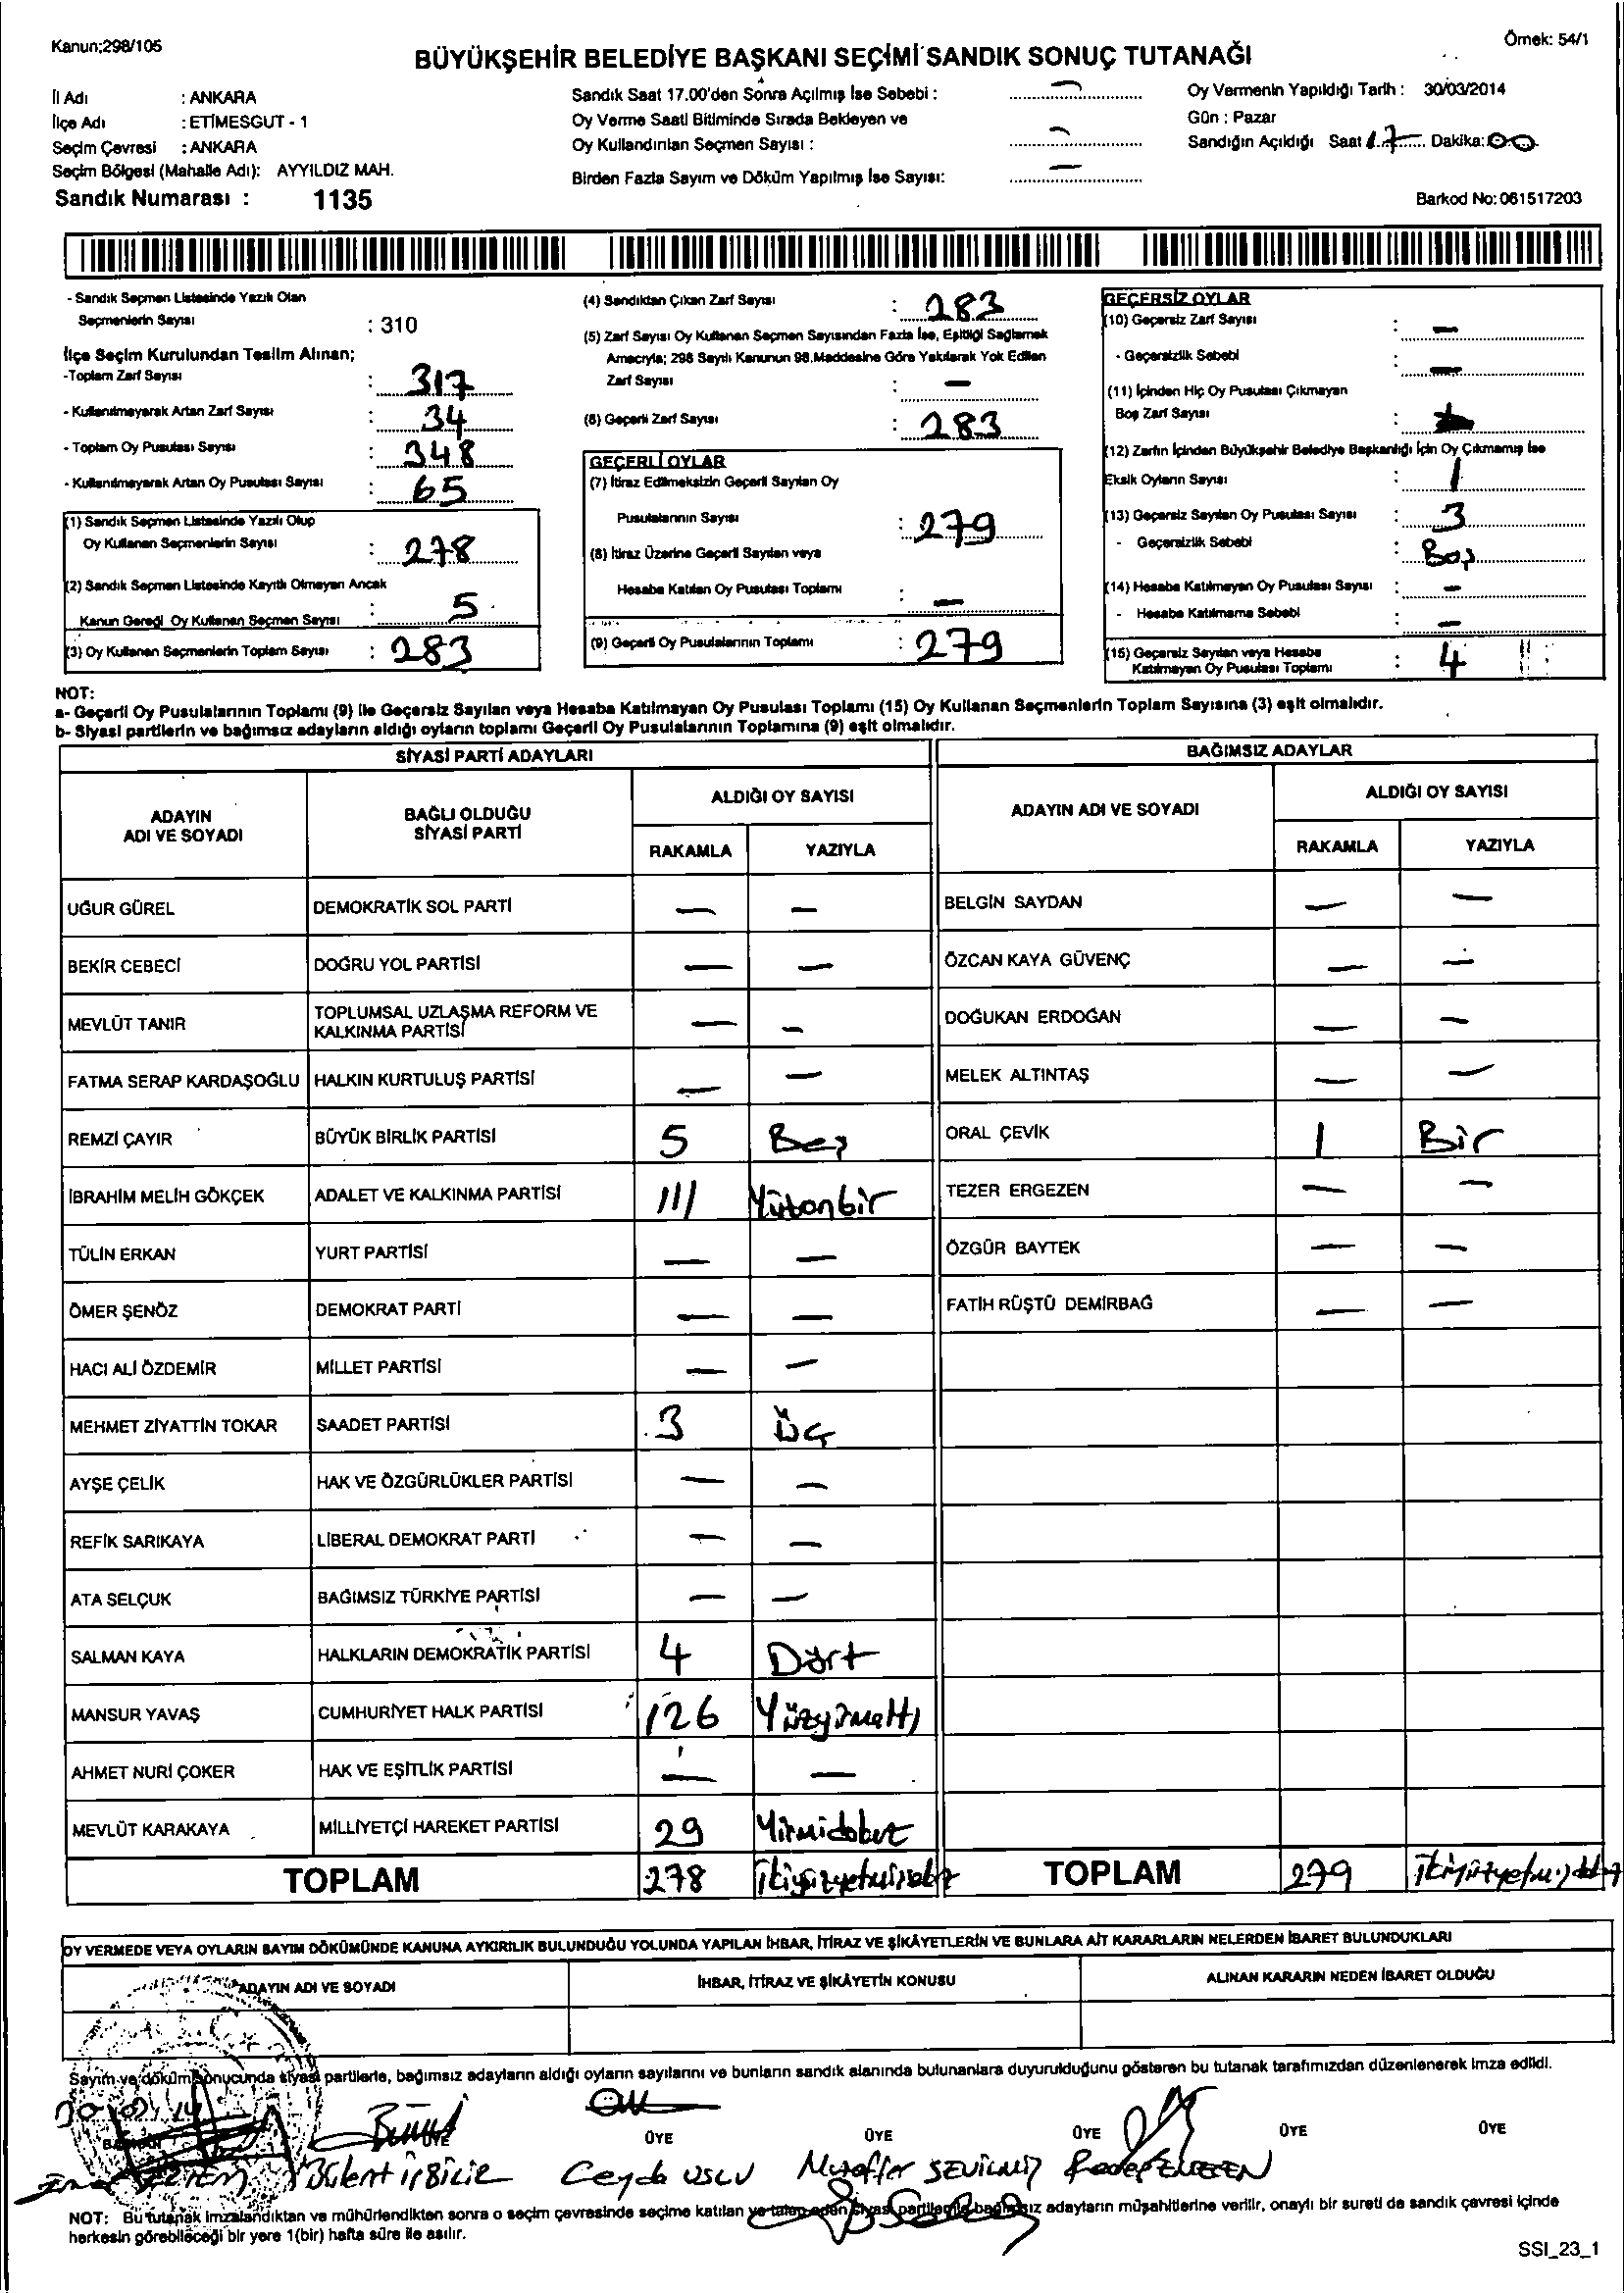 Kanun;298/105
Örnek: 54/1
BÜYÜKŞEHİR BELEDİYE BAŞKANI SEÇİMİ SANDIK SONUÇ TUTANAĞI
İl Adı : ANKARA
İlçe Adı : ETİMESGUT - 1
Seçim Çevresi : ANKARA
Seçim Bölgesi (Mahalle Adı): AYYILDIZ MAH.
Sandık Numarası : 1135
Sandık Saat 17.00'den Sonra Açılmış İse Sebebi : —
Oy Verme Saati Bitiminde Sırada Bekleyen ve
Oy Kullandırılan Seçmen Sayısı : —
Birden Fazla Sayım ve Döküm Yapılmış İse Sayısı: —
Oy Vermenin Yapıldığı Tarih : 30/03/2014
Gün : Pazar
Sandığın Açıldığı Saat 17 Dakika: 00
Barkod No: 061517203
- Sandık Seçmen Listesinde Yazılı Olan
Seçmenlerin Sayısı : 310
İlçe Seçim Kurulundan Teslim Alınan;
-Toplam Zarf Sayısı : 317
- Kullanılmayarak Artan Zarf Sayısı : 34
- Toplam Oy Pusulası Sayısı : 348
- Kullanılmayarak Artan Oy Pusulası Sayısı : 65
(1) Sandık Seçmen Listesinde Yazılı Olup
Oy Kullanan Seçmenlerin Sayısı : 278
(2) Sandık Seçmen Listesinde Kayıtlı Olmayan Ancak
Kanun Gereği Oy Kullanan Seçmen Sayısı : 5
(3) Oy Kullanan Seçmenlerin Toplam Sayısı : 283
(4) Sandıktan Çıkan Zarf Sayısı : 283
(5) Zarf Sayısı Oy Kullanan Seçmen Sayısından Fazla İse, Eşitliği Sağlamak
Amacıyla; 298 Sayılı Kanunun 98.Maddesine Göre Yakılarak Yok Edilen
Zarf Sayısı : —
(6) Geçerli Zarf Sayısı : 283
GEÇERLİ OYLAR
(7) İtiraz Edilmeksizin Geçerli Sayılan Oy
Pusulalarının Sayısı : 279
(8) İtiraz Üzerine Geçerli Sayılan veya
Hesaba Katılan Oy Pusulası Toplamı : —
(9) Geçerli Oy Pusulalarının Toplamı : 279
GEÇERSİZ OYLAR
(10) Geçersiz Zarf Sayısı : —
- Geçersizlik Sebebi : —
(11) İçinden Hiç Oy Pusulası Çıkmayan
Boş Zarf Sayısı :
(12) Zarfın İçinden Büyükşehir Belediye Başkanlığı İçin Oy Çıkmamış İse
Eksik Oyların Sayısı : 1
(13) Geçersiz Sayılan Oy Pusulası Sayısı : 3
- Geçersizlik Sebebi : Boş
(14) Hesaba Katılmayan Oy Pusulası Sayısı : —
- Hesaba Katılmama Sebebi : —
(15) Geçersiz Sayılan veya Hesaba
Katılmayan Oy Pusulası Toplamı : 4
NOT:
a- Geçerli Oy Pusulalarının Toplamı (9) ile Geçersiz Sayılan veya Hesaba Katılmayan Oy Pusulası Toplamı (15) Oy Kullanan Seçmenlerin Toplam Sayısına (3) eşit olmalıdır.
b- Siyasi partilerin ve bağımsız adayların aldığı oyların toplamı Geçerli Oy Pusulalarının Toplamına (9) eşit olmalıdır.
SİYASİ PARTİ ADAYLARI
BAĞIMSIZ ADAYLAR
ADAYIN ADI VE SOYADI
BAĞLI OLDUĞU SİYASİ PARTİ
ALDIĞI OY SAYISI
RAKAMLA YAZIYLA
ADAYIN ADI VE SOYADI
ALDIĞI OY SAYISI
RAKAMLA YAZIYLA
UĞUR GÜREL DEMOKRATİK SOL PARTİ — — BELGİN SAYDAN — —
BEKİR CEBECİ DOĞRU YOL PARTİSİ — — ÖZCAN KAYA GÜVENÇ — —
MEVLÜT TANIR TOPLUMSAL UZLAŞMA REFORM VE KALKINMA PARTİSİ — — DOĞUKAN ERDOĞAN — —
FATMA SERAP KARDAŞOĞLU HALKIN KURTULUŞ PARTİSİ — — MELEK ALTINTAŞ — —
REMZİ ÇAYIR BÜYÜK BİRLİK PARTİSİ 5 Beş ORAL ÇEVİK 1 Bir
İBRAHİM MELİH GÖKÇEK ADALET VE KALKINMA PARTİSİ 111 Yüzonbir TEZER ERGEZEN — —
TÜLİN ERKAN YURT PARTİSİ — — ÖZGÜR BAYTEK — —
ÖMER ŞENÖZ DEMOKRAT PARTİ — — FATİH RÜŞTÜ DEMİRBAĞ — —
HACI ALİ ÖZDEMİR MİLLET PARTİSİ — —
MEHMET ZİYATTİN TOKAR SAADET PARTİSİ 3 Üç
AYŞE ÇELİK HAK VE ÖZGÜRLÜKLER PARTİSİ — —
REFİK SARIKAYA LİBERAL DEMOKRAT PARTİ — —
ATA SELÇUK BAĞIMSIZ TÜRKİYE PARTİSİ — —
SALMAN KAYA HALKLARIN DEMOKRATİK PARTİSİ 4 Dört
MANSUR YAVAŞ CUMHURİYET HALK PARTİSİ 126 Yüzyirmaltı
AHMET NURİ ÇOKER HAK VE EŞİTLİK PARTİSİ — —
MEVLÜT KARAKAYA MİLLİYETÇİ HAREKET PARTİSİ 29 Yirmidokuz
TOPLAM 278 TOPLAM 279
OY VERMEDE VEYA OYLARIN SAYIM DÖKÜMÜNDE KANUNA AYKIRILIK BULUNDUĞU YOLUNDA YAPILAN İHBAR, İTİRAZ VE ŞİKÂYETLERİN VE BUNLARA AİT KARARLARIN NELERDEN İBARET BULUNDUKLARI
ADAYIN ADI VE SOYADI
İHBAR, İTİRAZ VE ŞİKÂYETİN KONUSU
ALINAN KARARIN NEDEN İBARET OLDUĞU
Sayım ve döküm sonucunda siyasi partilerle, bağımsız adayların aldığı oyların sayılarını ve bunların sandık alanında bulunanlara duyurulduğunu gösteren bu tutanak tarafımızdan düzenlenerek imza edildi.
BAŞKAN ÜYE ÜYE ÜYE ÜYE ÜYE ÜYE
Bülent Ceyda USLU Muzaffer SEVİLMİŞ
NOT: Bu tutanak imzalandıktan ve mühürlendikten sonra o seçim çevresinde seçime katılan ve talep eden siyasi partilerle bağımsız adayların müşahitlerine verilir, onaylı bir sureti de sandık çevresi içinde
herkesin görebileceği bir yere 1(bir) hafta süre ile asılır.
SSI_23_1